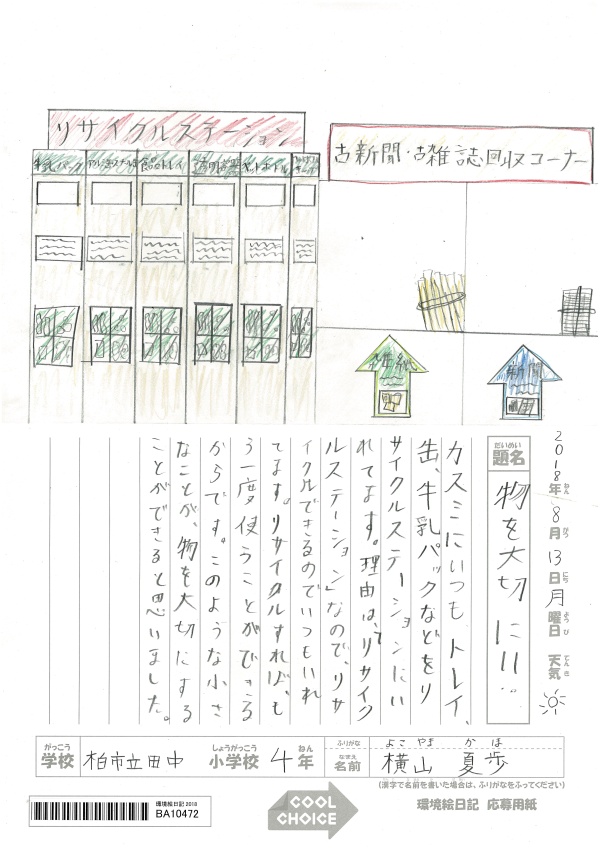 リサイクルステーション
古新聞・古雑誌回収コーナー
牛乳パック
食品トレイ
ペットボトル
雑紙
新聞
2018年ねん8月がつ13日にち月曜日ようび 天気てんき
題名だいめい 物を大切に!!
カスミにいつもトレイ、
缶、牛乳パックなどをリ
サイクルステーションにい
れてます。理由は、「リサイク
ルステーション」なので、リサ
イクルできるのでいつもいれ
てます。リサイクルすれば、も
う一度使うことができる
からです。このような小さ
なことが、物を大切にする
ことができると思いました。
がっこう しょうがっこう ねん ふりがな よこ やま か ほ
学校 柏市立田中 小学校 4年 名前なまえ 横山 夏歩
(漢字で名前を書いた場合は、ふりがなをふってください)
環境絵日記2018
BA10472
COOL CHOICE
環境絵日記 応募用紙